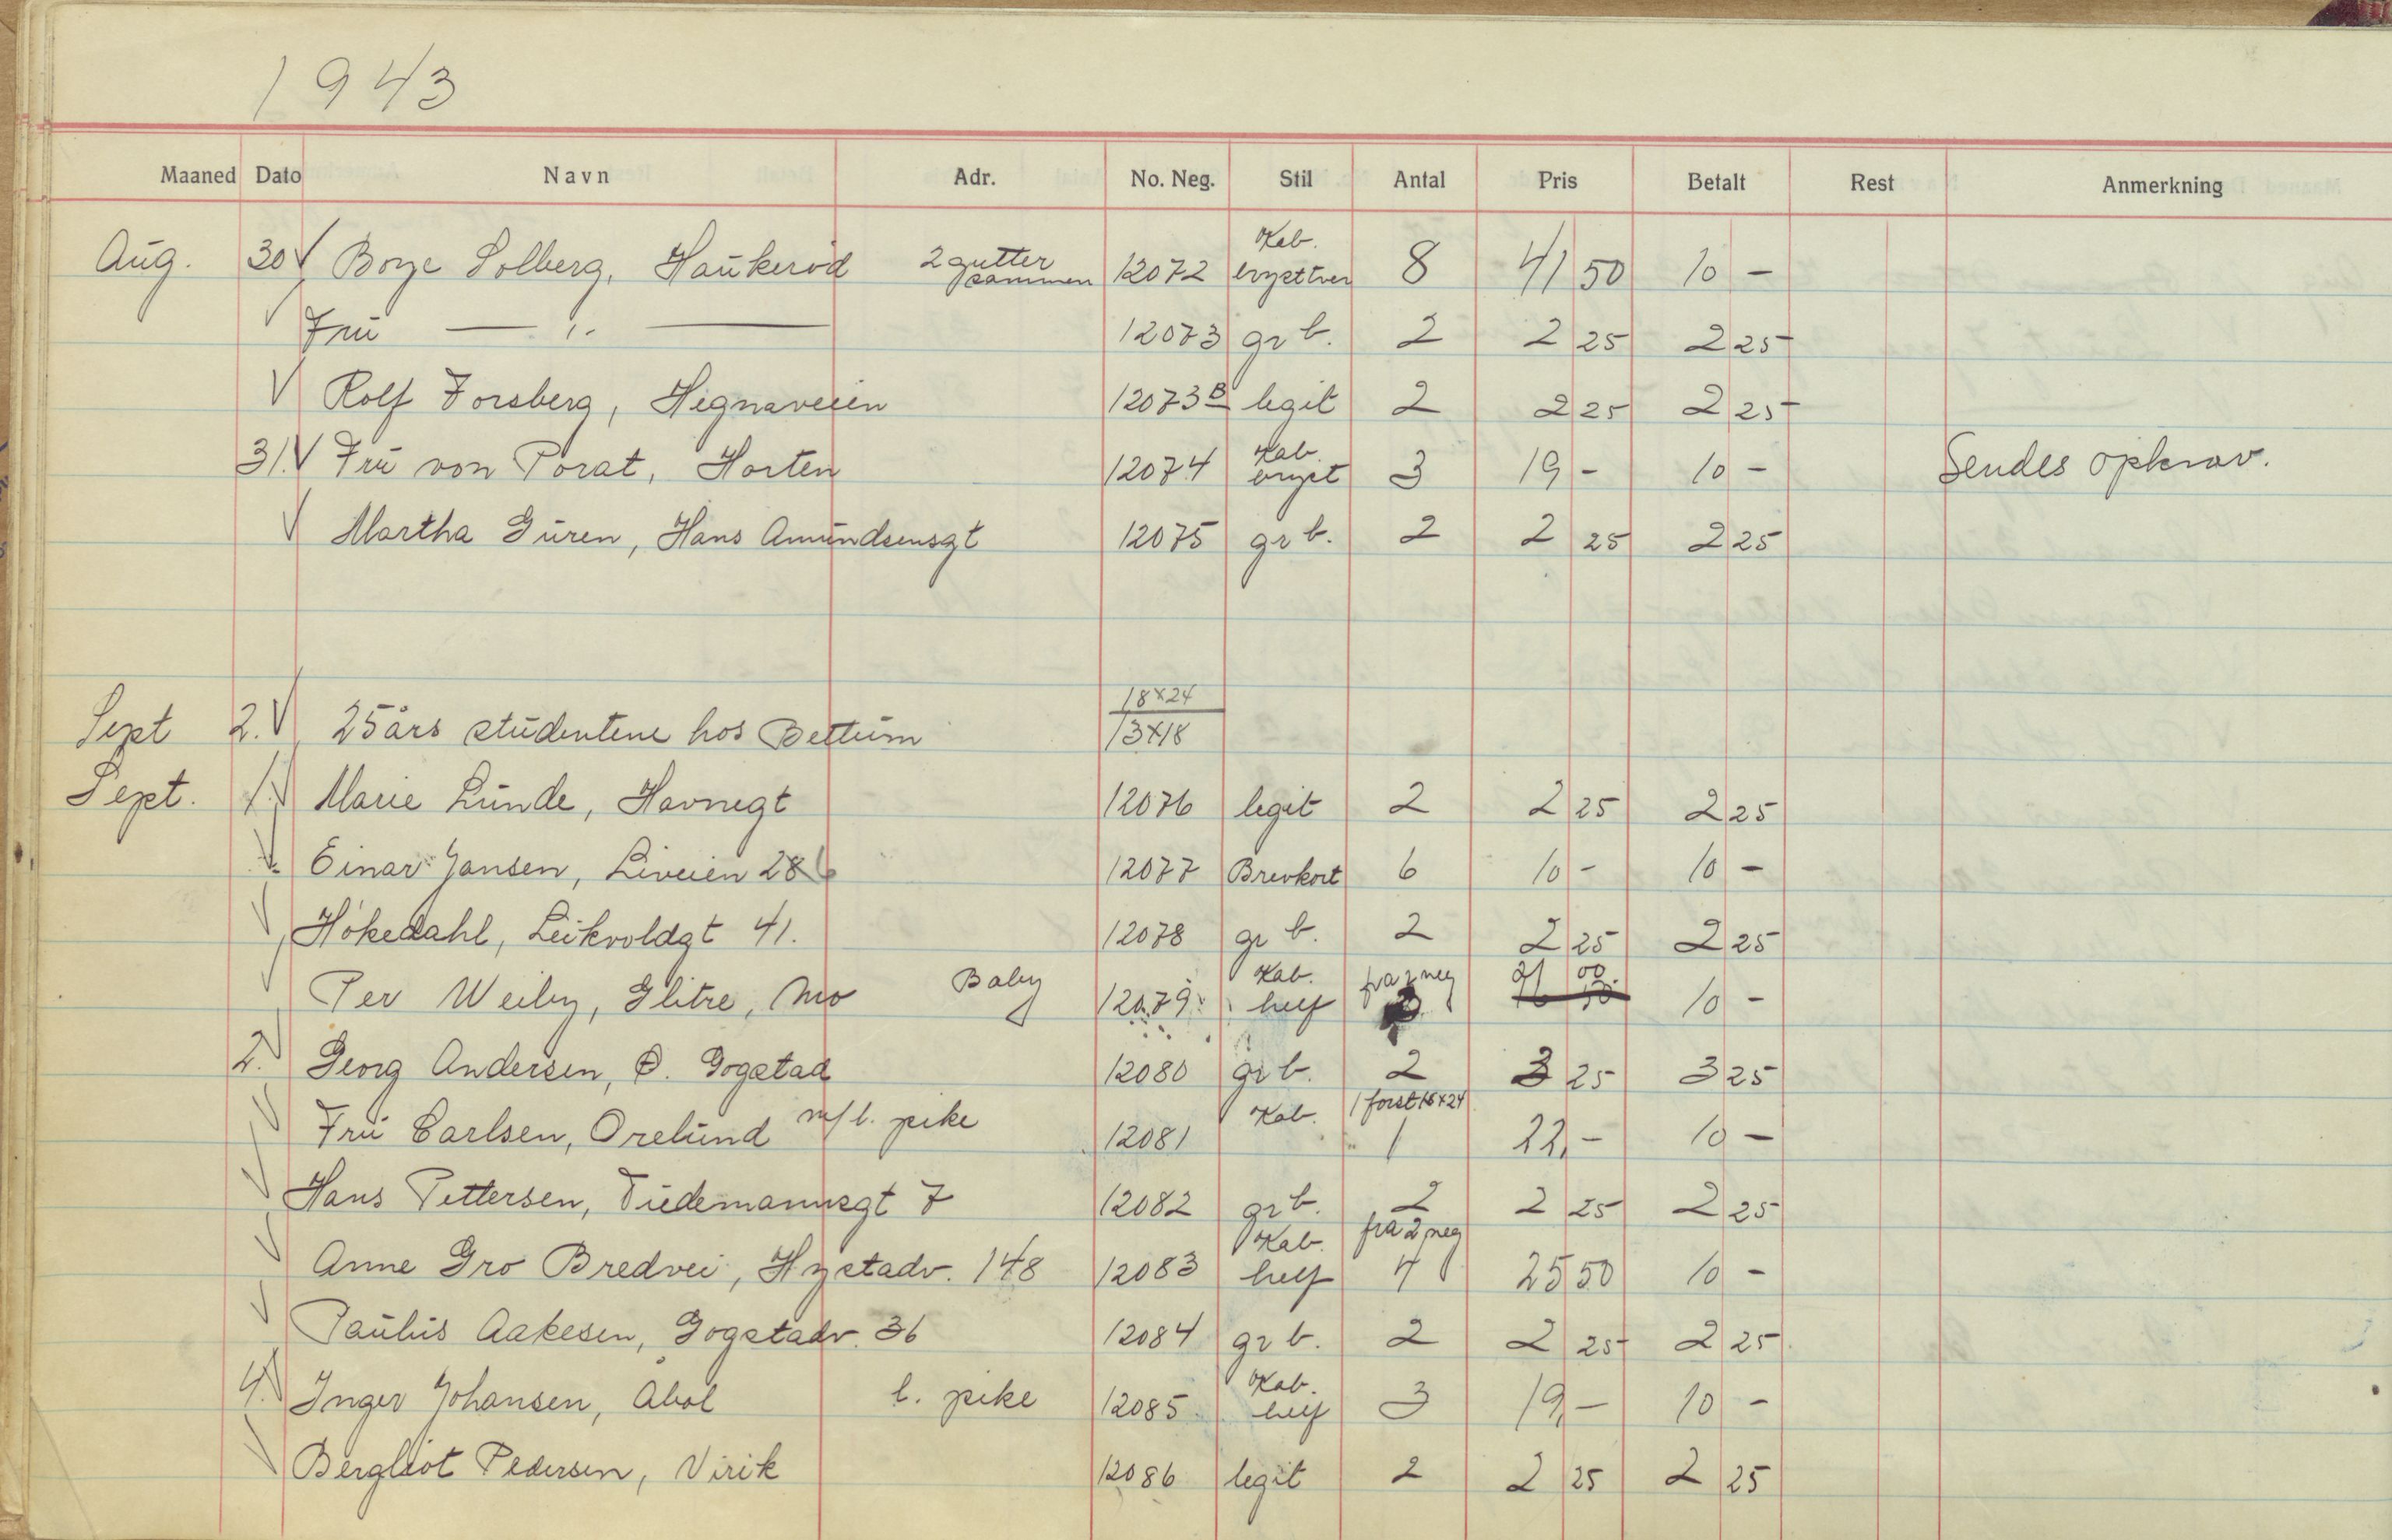 1943
Maaned Dato Navn Adr. No. Neg. Stil Antal Pris Betalt Rest Anmerkning
Aug. 30 √ Borge Solberg, Haukerød 2 gutter sammen 12072 Kab. brysttver 8 41 50 10 -
√ Frü — " — 12073 gr b. 2 2 25 2 25
√ Rolf Forsberg, Hegnaveien 12073 B legit 2 2 25 2 25
31. √ Frü von Porat, Horten 12074 Kab. bryst 3 19 - 10 - Sendes opkrav.
√ Martha Guren, Hans Amundsensgt 12075 gr b. 2 2 25 2 25
18x24
Sept 2. √ 25 års studentene hos Bettum 13x18
Sept. 1. √ Marie Lunde, Havnegt 12076 legit 2 2 25 2 25
√ Einar Jansen, Liveien 28 12077 Brevkort 6 10 - 10 -
√ Hökedahl, Leikvoldgt 41. 12078 gr b. 2 2 25 2 25
√ Per Weiby, Glitre, Mo Baby 12079 Kab. helf fra 2 neg 3 21 00. 10 -
2. √ Georg Andersen, Ø. Gogstad 12080 gr b. 2 3 25 3 25
√ Frü Carlsen, Orelund m/l. pike 12081 Kab. 1 forst 18x24 1 22,- 10 -
√ Hans Pettersen, Tidemannsgt 7 12082 gr b. 2 2 25 2 25
√ Anne Gro Bredvei, Hystadv. 148 12083 Kab. helf fra 2 neg 4 25 50 10 -
√ Paulus Aakesen, Gogstadv. 36 12084 gr b. 2 2 25 2 25
4. √ Inger Johansen, Åbol l. pike 12085 Kab. helf 3 19,- 10 -
√ Bergliot Pedersen, Virik 12086 legit 2 2 25 2 25